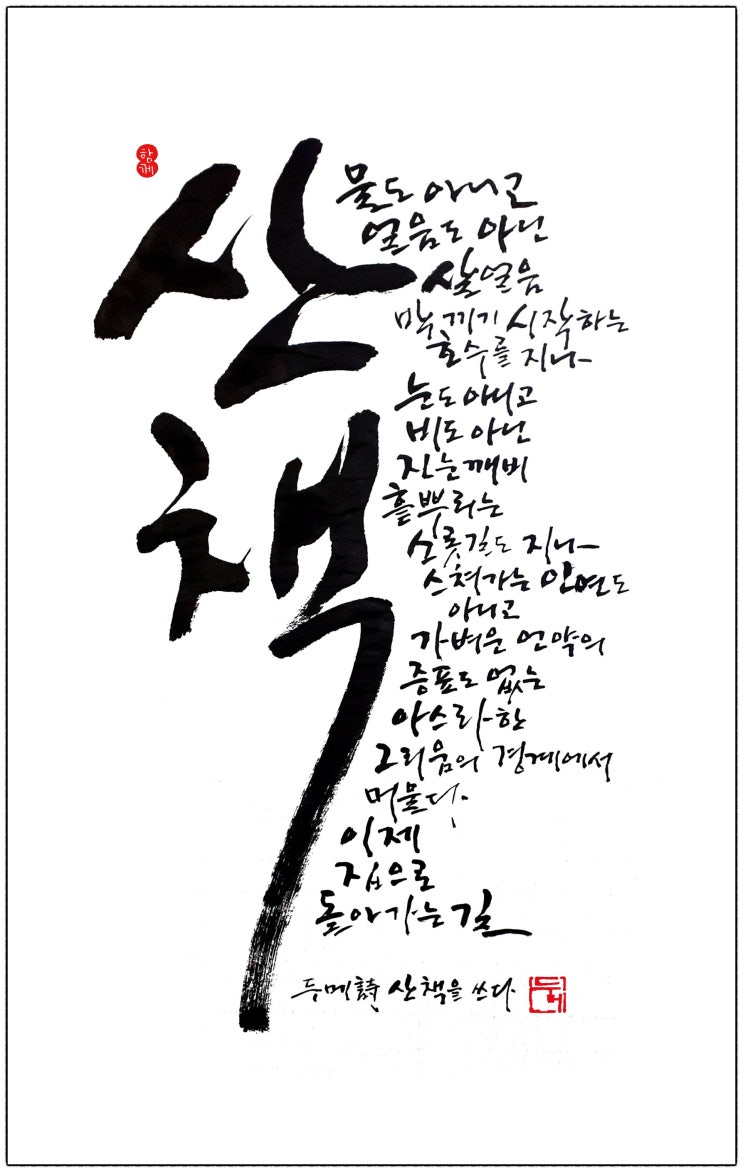 함께
산책
물도 아니고
얼음도 아닌
살얼음
막 끼기 시작하는
호수를 지나
눈도 아니고
비도 아닌
진눈깨비
흩뿌리는
소롯길도 지나
스쳐가는 인연도
아니고
가벼운 언약의
증표도 없는
아스라한
그리움의 경계에서
머물다.
이제
집으로
돌아가는 길
두메詩 산책을 쓰다.
두메